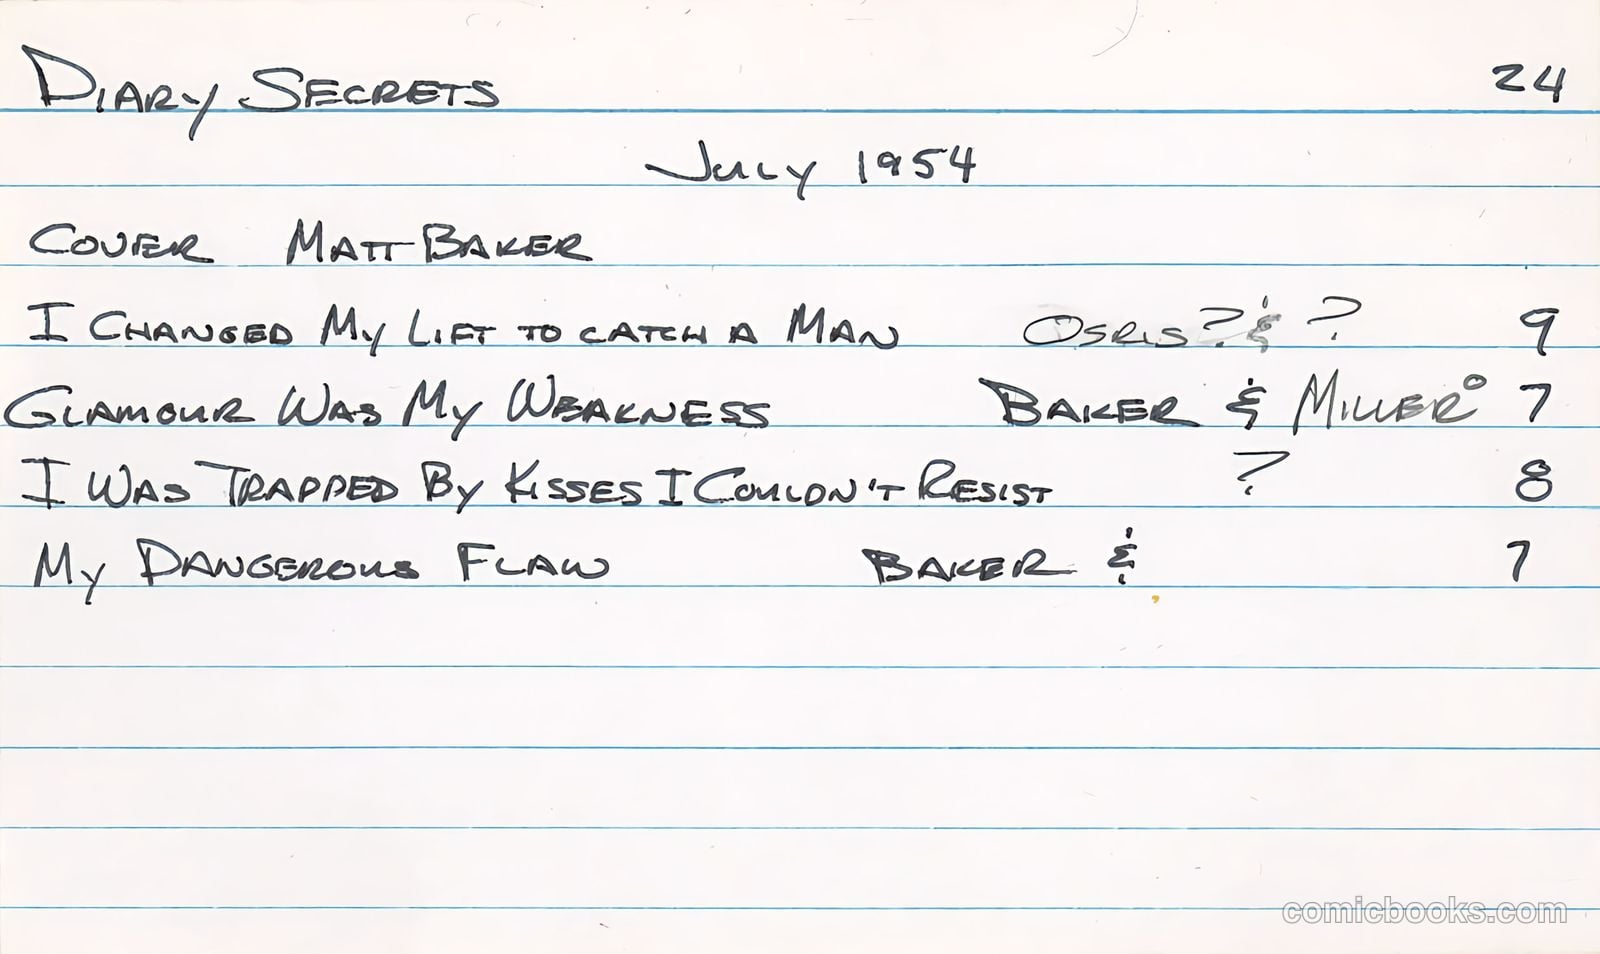 DIARY SECRETS 24
JULY 1954
COVER MATT BAKER
I CHANGED MY LIFE TO CATCH A MAN OSRIS? & ? 9
GLAMOUR WAS MY WEAKNESS BAKER & MILLER° 7
I WAS TRAPPED BY KISSES I COULDN'T RESIST ? 8
MY DANGEROUS FLAW BAKER & 7
comicbooks.com